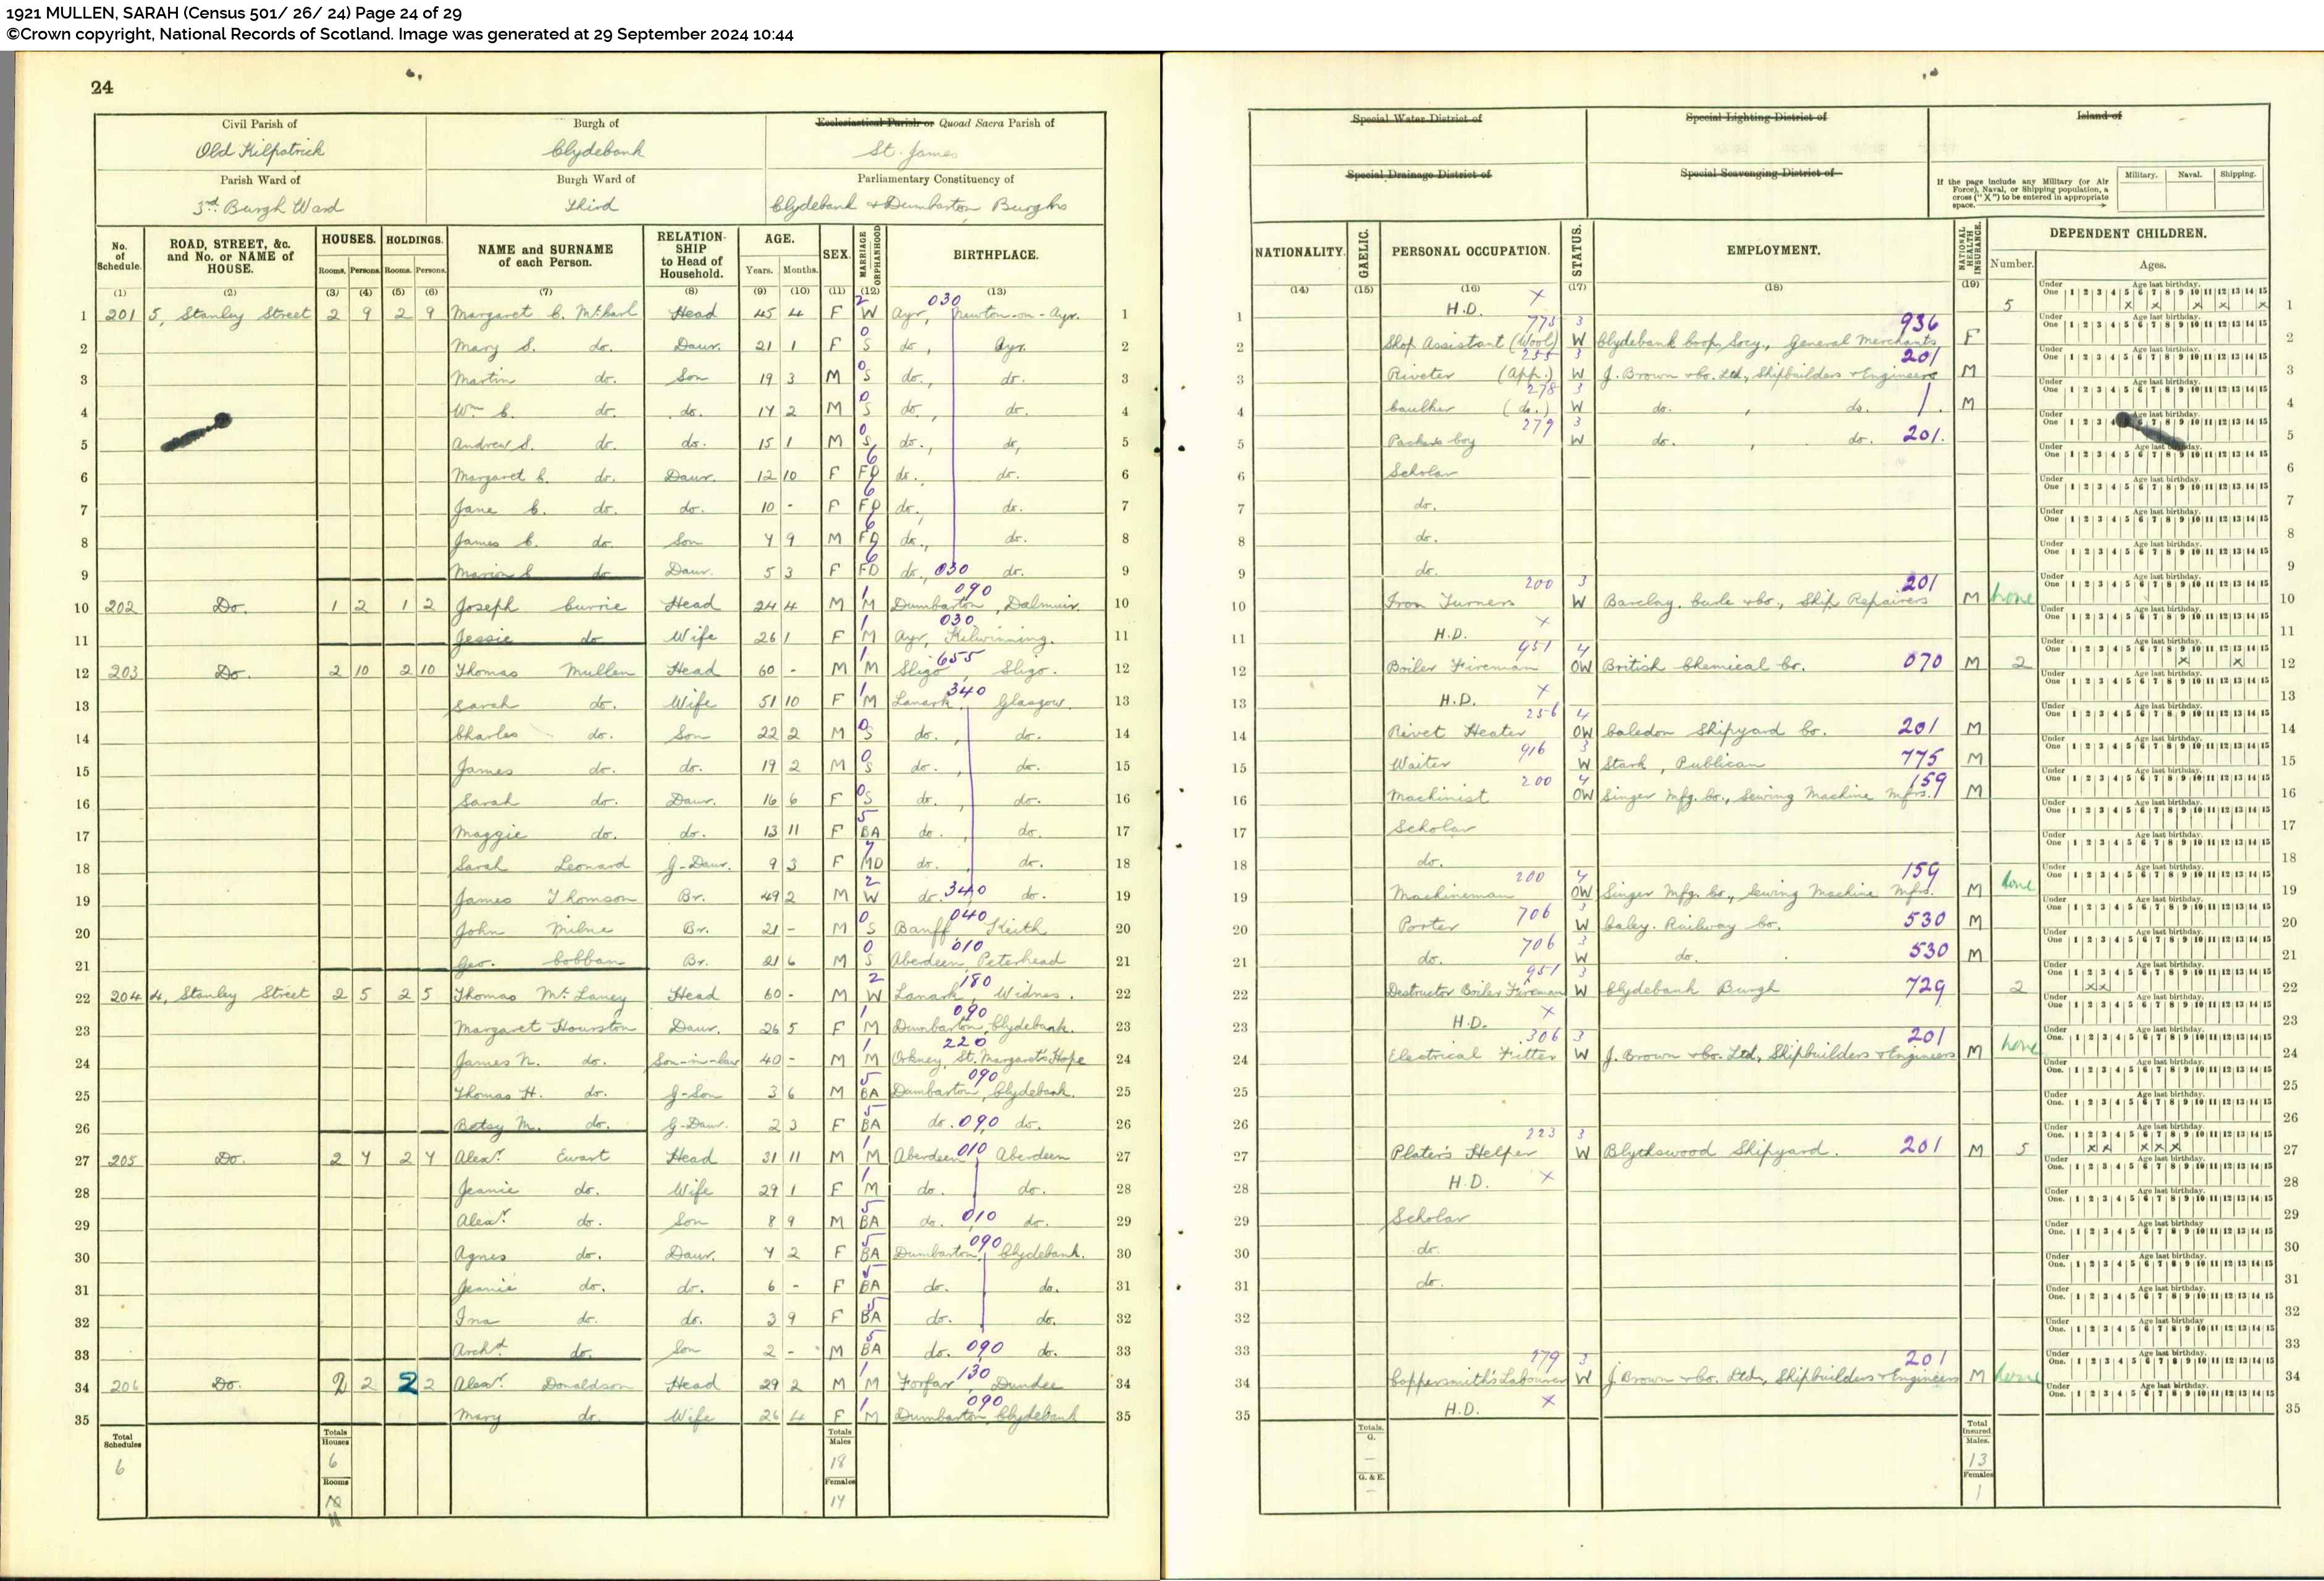 1921 MULLEN, SARAH (Census 501/ 26/ 24) Page 24 of 29
©Crown copyright, National Records of Scotland. Image was generated at 29 September 2024 10:44
24
Civil Parish of Old Kilpatrick
Burgh of Clydebank
Ecclesiastical Parish or Quoad Sacra Parish of St. James
Parish Ward of 3rd. Burgh Ward
Burgh Ward of Third
Parliamentary Constituency of Clydebank & Dumbarton Burghs
Special Water District of
Special Lighting District of
Island of
Special Drainage District of
Special Scavenging District of
If the page include any Military (or Air Force), Naval, or Shipping population, a cross ("X") to be entered in appropriate space.
Military. Naval. Shipping.
No. of Schedule. ROAD, STREET, &c. and No. or NAME of HOUSE. HOUSES. Rooms. Persons. HOLDINGS. Rooms. Persons. NAME and SURNAME of each Person. RELATION-SHIP to Head of Household. AGE. Years. Months. SEX. MARRIAGE or ORPHANHOOD BIRTHPLACE. NATIONALITY. GAELIC. PERSONAL OCCUPATION. STATUS. EMPLOYMENT. NATIONAL HEALTH INSURANCE. DEPENDENT CHILDREN. Number. Ages.
(1) (2) (3) (4) (5) (6) (7) (8) (9) (10) (11) (12) (13) (14) (15) (16) (17) (18) (19)
1 201 5, Stanley Street 2 9 2 9 Margaret C. Head 45 4 F W Ayr, Newton-on-Ayr. 030 H.D. 5
2 Mary S. do. Daur. 21 1 F S do., Ayr. Shop Assistant (Wool) W Clydebank Coop. Socy., General Merchants 936 F
3 Martin do. Son 19 3 M S do., do. Riveter (App.) W J. Brown & Co. Ltd., Shipbuilders & Engineers 201 M
4 Wm. C. do. do. 17 2 M S do., do. Caulker (do.) 278 W do., do. M
5 Andrew S. do. do. 15 1 M S do., do. boy 279 W do., do. 201. M
6 Margaret C. do. Daur. 12 10 F FD do., do. Scholar
7 Jane C. do. do. 10 - F FD do., do. do.
8 James C. do. Son 7 9 M FD do., do. do.
9 Marion S. do. Daur. 5 3 F FD do., 030 do. do.
10 202 Do. 1 2 1 2 Joseph Currie Head 24 4 M M Dumbarton, Dalmuir. 090 Iron Turner 200 W Barclay, Curle & Co., Ship Repairers 201 M none
11 Jessie do. Wife 26 1 F M Ayr, Kilwinning. 030 H.D.
12 203 Do. 2 10 2 10 Thomas Mullen Head 60 - M M Sligo, Sligo. 655 Boiler Fireman 951 OW British Chemical Co. 070 M 2
13 Sarah do. Wife 51 10 F M Lanark, Glasgow. 340 H.D.
14 Charles do. Son 22 2 M S do., do. Rivet Heater 256 OW Caledon Shipyard Co. 201 M
15 James do. do. 19 2 M S do., do. Waiter 916 W Stark, Publican 775 M
16 Sarah do. Daur. 16 6 F S do., do. Machinist 200 OW Singer Mfg. Co., Sewing Machine Mfrs. 159 M
17 Maggie do. do. 13 11 F BA do., do. Scholar
18 Sarah Leonard G-Daur. 9 3 F MD do., do. do.
19 James Thomson Br. 49 2 M W do. 340 do. Machineman 200 OW Singer Mfg. Co., Sewing Machine Mfrs. 159 M none
20 John Milne Br. 21 - M S Banff, Keith 040 Porter 706 W Caley. Railway Co. 530 M
21 Geo. Cobban Br. 21 6 M S Aberdeen, Peterhead 010 do. 706 W do. 530 M
22 204 4, Stanley Street 2 5 2 5 Thomas Head 60 - M W Lanark, Widnes. 180 Destructor Boiler Fireman 951 W Clydebank Burgh 729 2
23 Margaret Hourston Daur. 26 5 F M Dumbarton, Clydebank. 090 H.D.
24 James N. do. Son-in-law 40 - M M Orkney, St. Margaret's Hope 220 Electrical Fitter 306 W J. Brown & Co. Ltd., Shipbuilders & Engineers 201 M none
25 Thomas H. do. G-Son 3 6 M BA Dumbarton, Clydebank. 090
26 Betsy M. do. G-Daur. 2 3 F BA do. 090 do.
27 205 Do. 2 7 2 7 Alexr. Ewart Head 31 11 M M Aberdeen 010 Aberdeen Plater's Helper 223 W Blythswood Shipyard. 201 M 5
28 Jeanie do. Wife 29 1 F M do. do. H.D.
29 Alexr. do. Son 8 9 M BA do. 010 do. Scholar
30 Agnes do. Daur. 7 2 F BA Dumbarton, Clydebank. 090 do.
31 Jeanie do. do. 6 - F BA do. do. do.
32 Ina do. do. 3 9 F BA do. do.
33 Archd. do. Son 2 - M BA do. 090 do.
34 206 Do. 2 2 2 2 Alexr. Donaldson Head 29 2 M M Forfar, Dundee 130 Coppersmith's Labourer W J. Brown & Co. Ltd., Shipbuilders & Engineers 201 M none
35 Mary do. Wife 26 4 F M Dumbarton, Clydebank 090 H.D.
Total Schedules 6
Totals Houses 6
Rooms 11
Totals Males 18
Females 17
Totals. G. -
G. & E. -
Total Insured. Males. 13
Females 1